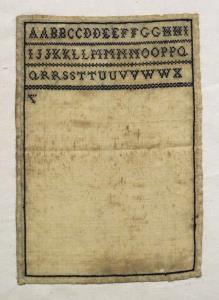 AABBCCDDEEFFGGHHI
IJJKKLLMMNNOOPPQ
QRRSSTTUUVVWWX